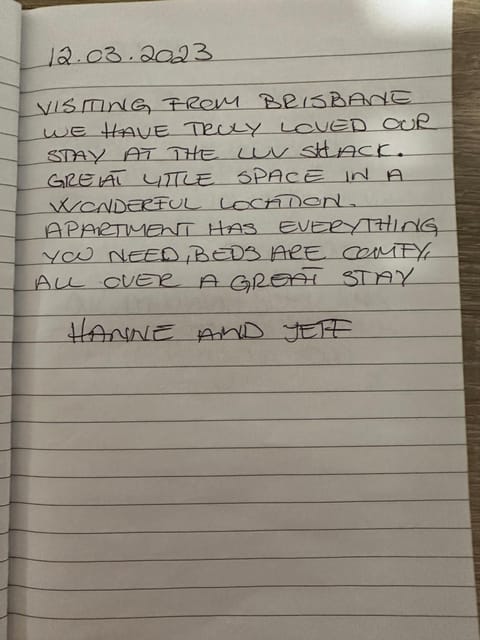 12.03.2023
VISITING FROM BRISBANE
WE HAVE TRULY LOVED OUR
STAY AT THE LUV SHACK.
GREAT LITTLE SPACE IN A
WONDERFUL LOCATION.
APARTMENT HAS EVERYTHING
YOU NEED, BEDS ARE COMFY,
ALL OVER A GREAT STAY
HANNE AND JEFF